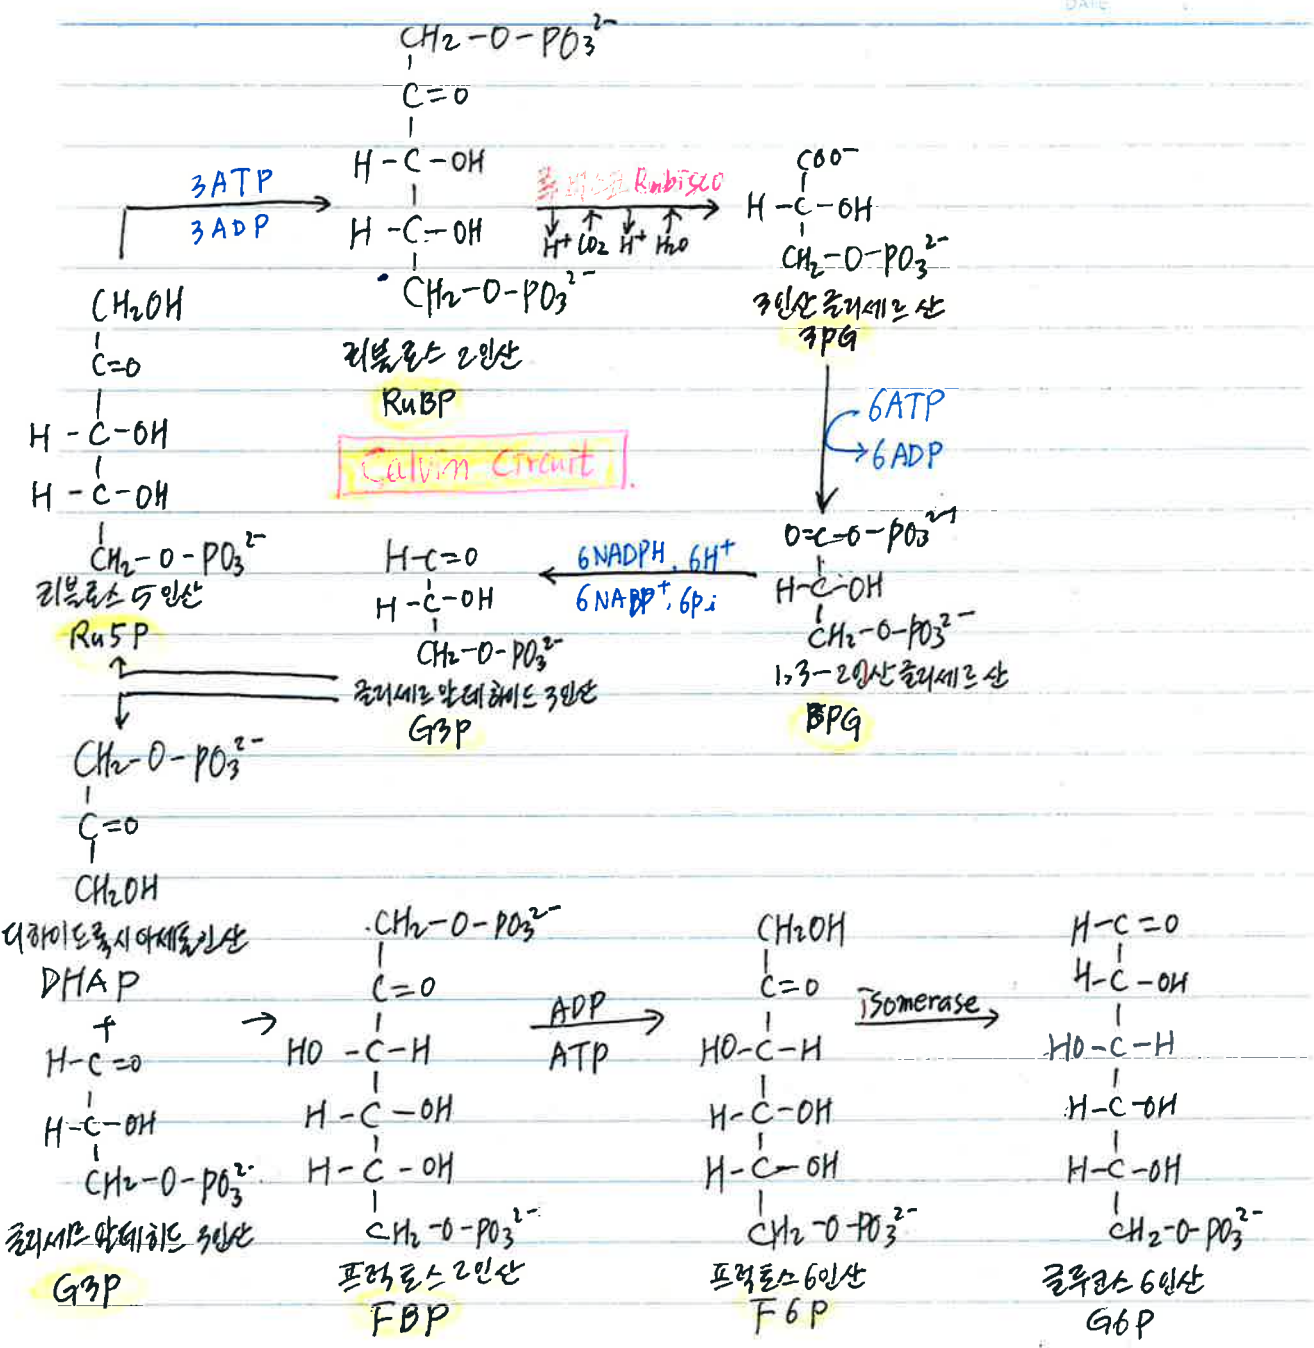 DATE
CH₂-O-PO₃²⁻
C=O
H-C-OH
H-C-OH
CH₂-O-PO₃²⁻
리불로스 2인산
RuBP
3ATP
3ADP
루비스코 Rubisco
H⁺ CO₂ H⁺ H₂O
COO⁻
H-C-OH
CH₂-O-PO₃²⁻
3인산글리세르산
3PG
6ATP
6ADP
CH₂OH
C=O
H-C-OH
H-C-OH
CH₂-O-PO₃²⁻
리불로스 5인산
Ru5P
Calvin Circuit
H-C=O
H-C-OH
CH₂-O-PO₃²⁻
글리세르알데하이드 3인산
G3P
6NADPH, 6H⁺
6NADP⁺, 6Pi
O=C-O-PO₃²⁻
H-C-OH
CH₂-O-PO₃²⁻
1,3-2인산글리세르산
BPG
CH₂-O-PO₃²⁻
C=O
CH₂OH
디하이드록시아세톤인산
DHAP
+
H-C=O
H-C-OH
CH₂-O-PO₃²⁻
글리세르알데히드 3인산
G3P
CH₂-O-PO₃²⁻
C=O
HO-C-H
H-C-OH
H-C-OH
CH₂-O-PO₃²⁻
프럭토스2인산
FBP
ADP
ATP
CH₂OH
C=O
HO-C-H
H-C-OH
H-C-OH
CH₂-O-PO₃²⁻
프럭토스6인산
F6P
isomerase
H-C=O
H-C-OH
HO-C-H
H-C-OH
H-C-OH
CH₂-O-PO₃²⁻
글루코스 6인산
G6P